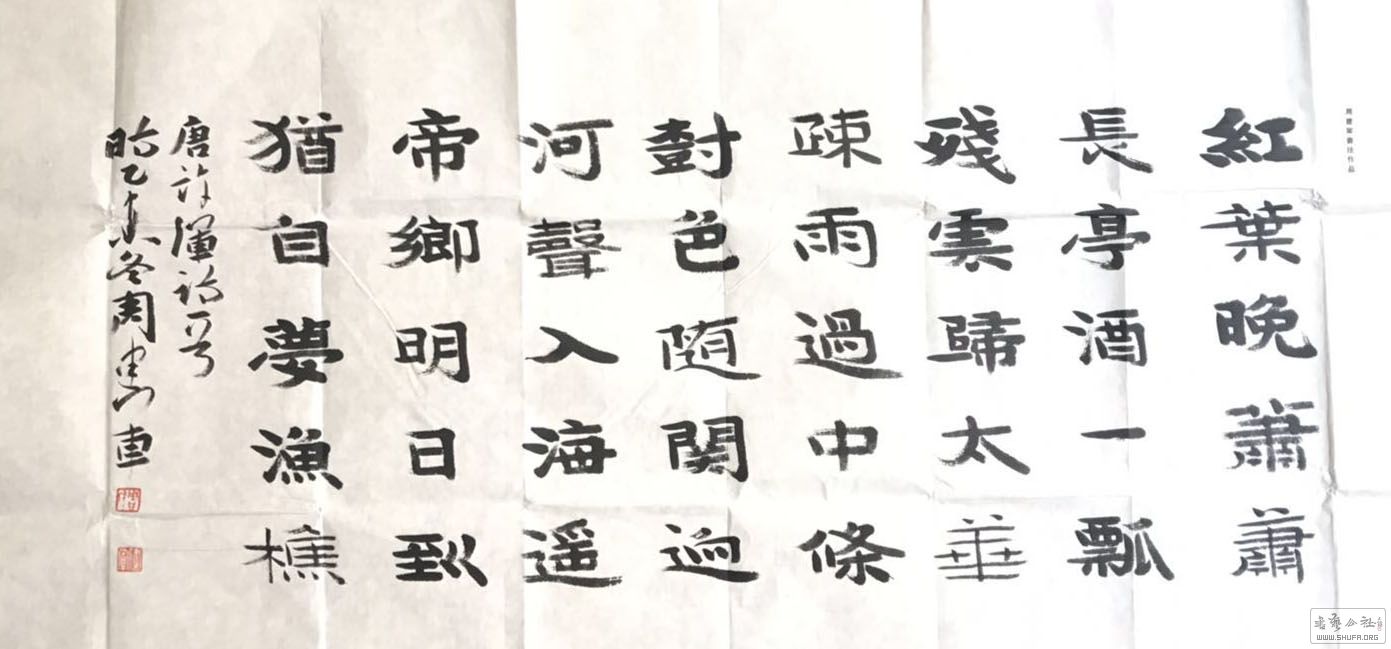 書法作品
紅葉晚蕭蕭
長亭酒一瓢
殘雲歸太華
疎雨過中條
尌色随關迥
河聲入海遥
帝鄉明日到
猶自夢漁樵
唐许渾诗一首
时乙未冬周書
书艺公社
WWW.SHUFA.ORG